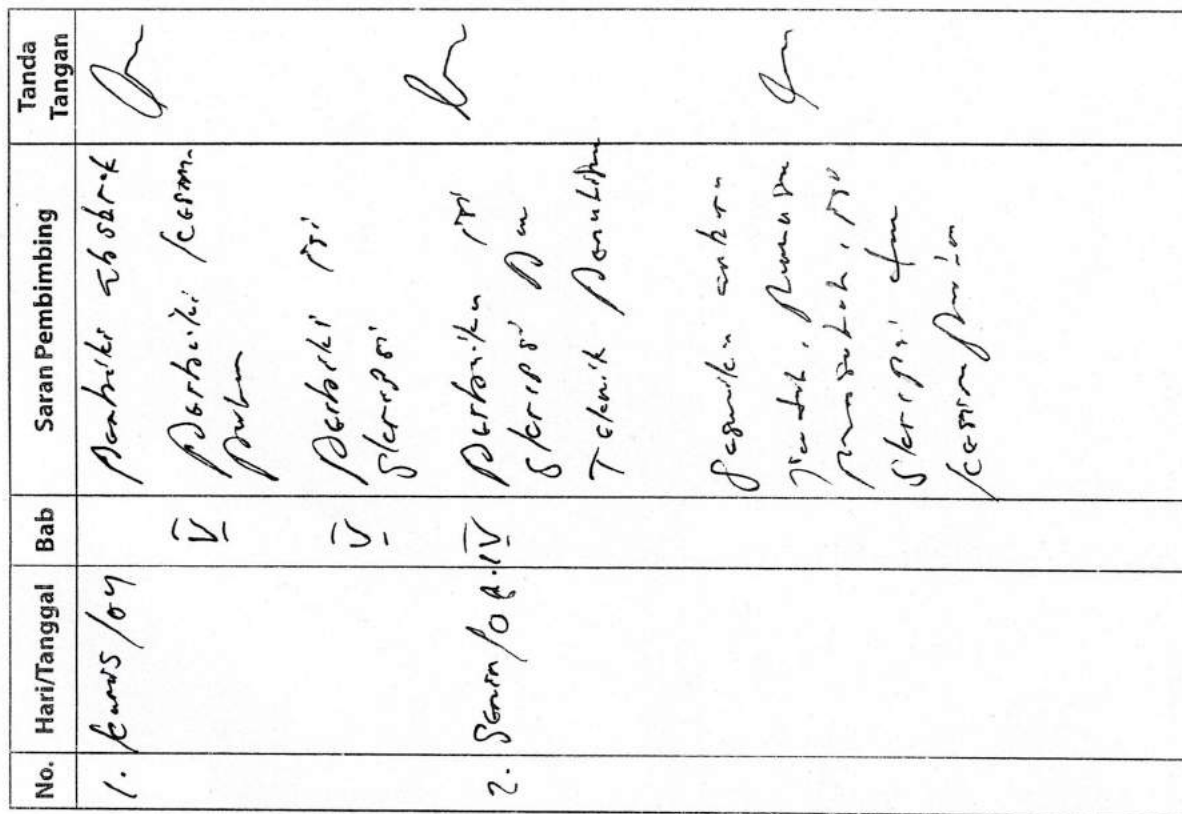 No. Hari/Tanggal Bab Saran Pembimbing Tanda
Tangan
1. kamis/04 Perbaiki abstrak
IV Perbaiki kesim-
pulan
V Perbaiki isi
skripsi
2. Senin/08 IV Perbaikan isi
skripsi dan
Teknik penulisan
Sesuaikan antara
judul, rumusan
masalah, isi
skripsi dan
kesimpulan